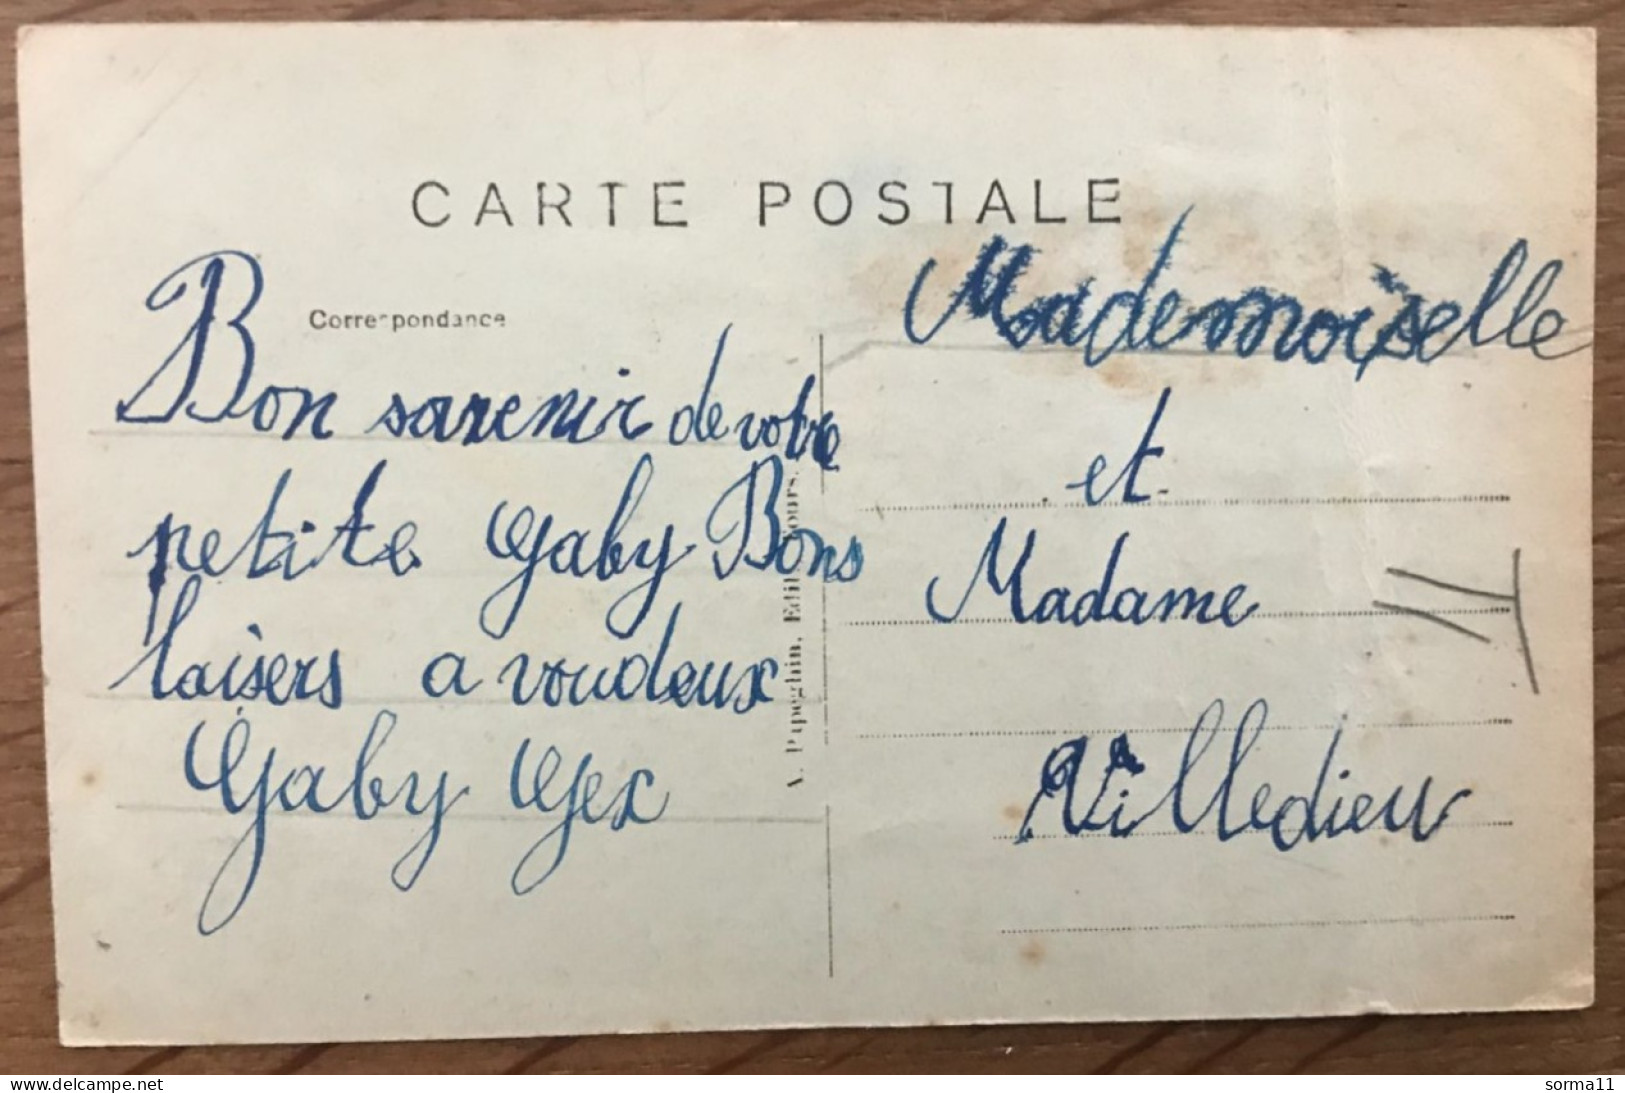 CARTE POSTALE
Correspondance
Bon souvenir de votre
petite Gaby Bons
baisers a voudeux
Gaby Gex
A. Papeghin, Edit. Tours.
Mademoiselle
et
Madame
Villedieu
www.delcampe.net
sorma11